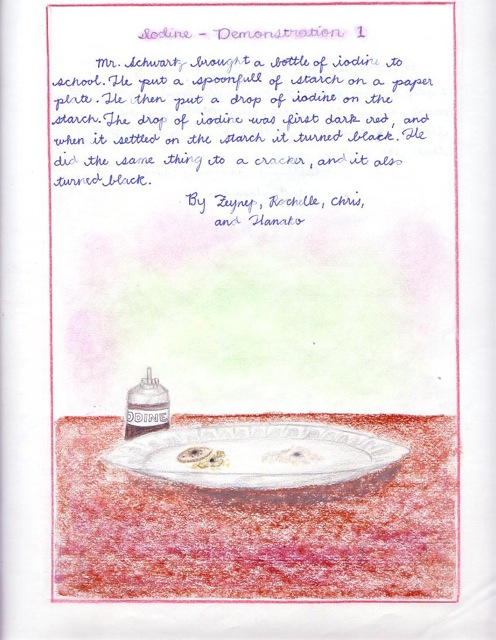 Iodine - Demonstration 1
Mr. Schwartz brought a bottle of iodine to
school. He put a spoonfull of starch on a paper
plate. He then put a drop of iodine on the
starch. The drop of iodine was first dark red, and
when it settled on the starch it turned black. He
did the same thing to a cracker, and it also
turned black.
By Zeynep, Rochelle, Chris,
and Hanako
IODINE